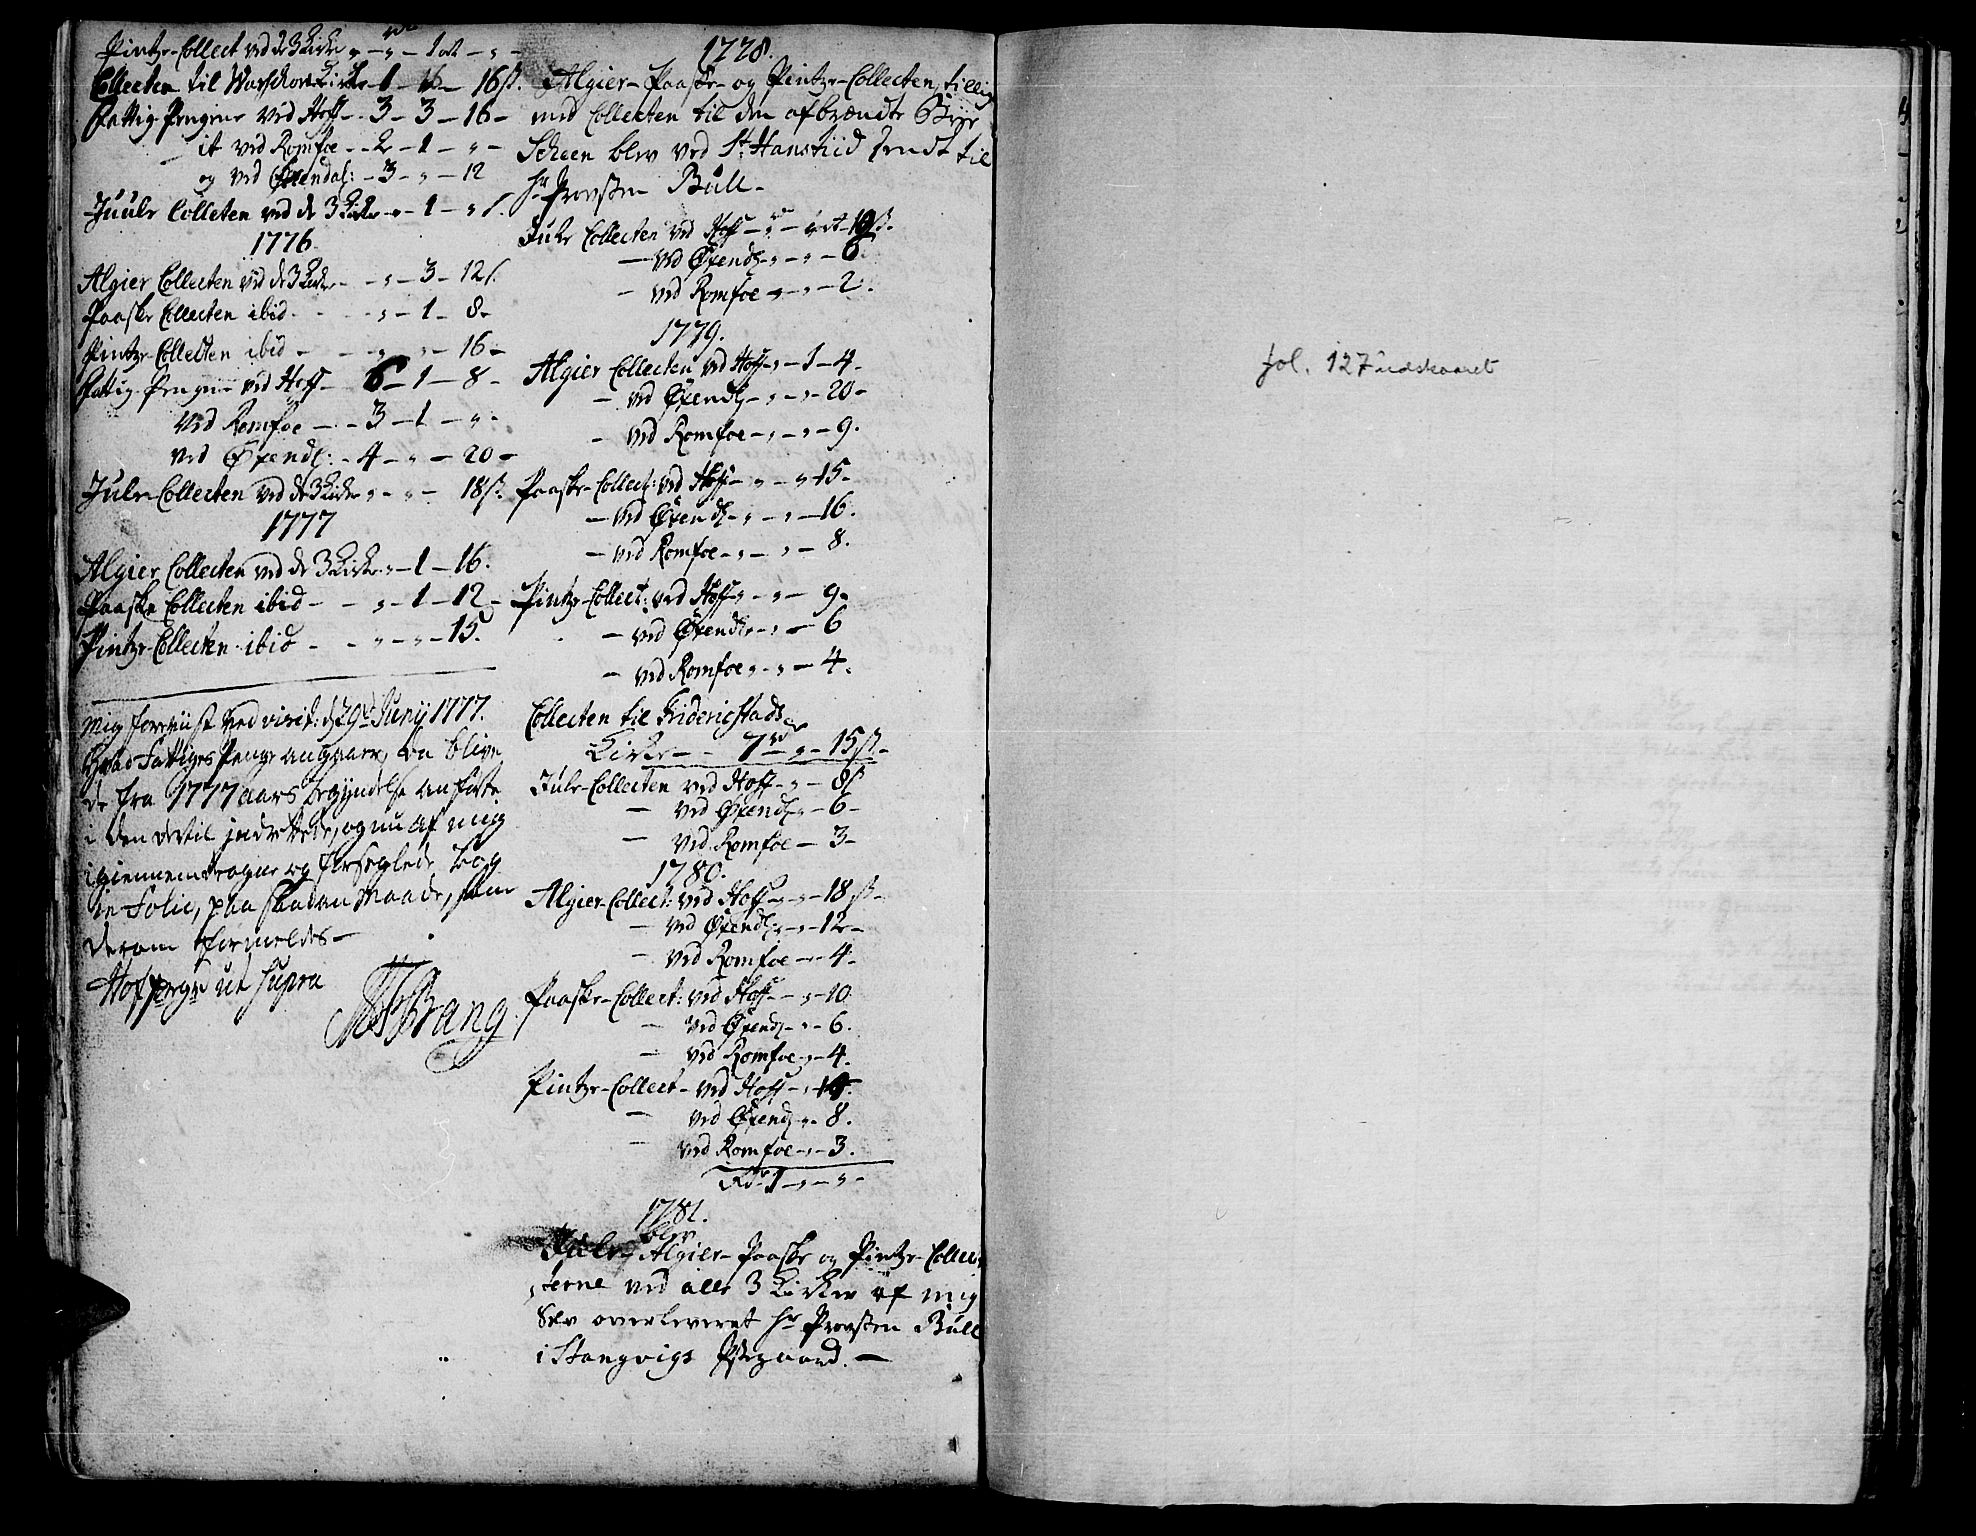 Pintze-Collect ved de 3 Kirker „ - 1 ort - „ -
Collecten til Warschou Kirke - 1 - „ - 16 s.
Fattig-Pengene ved Hoff - 3 - 3 - 16 -
it ved Romfoe - 2 - 1 - „ -
og ved Øxendal: - 3 - „ - 12
Juule Colleten ved de 3 Kirker - „ - 1 - „ s.
1776
Algier Collecten ved de 3 Kirker - „ - 3 - 12 s.
Paaske Collecten ibid - - - „ - 1 - 8 -
Pintze-Collecten ibid - - „ - „ - 16 -
Fattig-Pengene ved Hoff - 6 - 1 - 8 -
ved Romfoe - - 3 - 1 - „ -
ved Øxendl: - 4 - „ - 20 -
Jule-Collecten ved de 3 Kirker „ - „ - 18 s.
1777
Algier Collecten ved de 3 Kirker „ - 1 - 16.
Paaske Collecten ibid - - „ - 1 - 12 -
Pintze-Collecten ibid - - „ - „ - 15.
Mig foreviist ved visit: d. 29de Junij 1777.
Hvad Fattiges Penge angaaer, da blive
de fra 1777 aars Begyndelse anførte
i den dertil indrettede, og nu af mig
igiennemdragne og forseglede Bog
in Folio, paa saadan Maade, som
derom formeldes -
Hof prgrd ut supra
Bang
1778.
Algier- Paaske- og Pintze-Collecten, tillige
med Collecten til den afbrændte Bye
Scheen blev ved St. Hanstiid sendt til
Hr. Provsten Bull -
Jule Collecten ved Hoff - „ - ort - 19 s.
- ved Øxendl - „ - „ - 6.
- ved Romfoe - „ - 2.
1779.
Algier Collecten ved Hoff - „ - 1 - 4 -
- ved Øxendl - „ - „ - 20 -
- ved Romfoe - „ - „ - 9.
Paaske-Collect: ved Hoff - „ - „ 15 -
- ved Øxendl - „ - „ - 16.
- ved Romfoe - „ - „ - 8.
Pintze-Collect: ved Hoff - „ - „ - 9 -
- ved Øxendl - „ - 6
- ved Romfoe „ - „ - 4 -
Collecten til Friderichstads
Kirke - - 7 rd „ - 15 s. -
Jule-Collecten ved Hoff - „ - 8 s
- ved Øxendl - „ - 6 -
- ved Romfoe - 3 -
1780.
Algier-Collect: ved Hoff - „ - „ - 18 s. -
- ved Øxendl: „ - „ - 12 -
- ved Romfoe - - 4 -
Paaske-Collect: ved Hoff - - „ - 10
- ved Øxendl - „ - 6.
- ved Romfoe - „ - 4.
Pintze-Collect - ved Hoff - „ -
- ved Øxendl - „ - 8.
- ved Romfoe - „ - 3.
Rd. 1 - „ - „ -
1781.
blev
Jule- Algier- Paaske og Pintze-Collec-
terne ved alle 3 Kirker af mig
Selv overleveret Hr. Provsten Bull
i Stangvigs Prstegaard. -
fol. 127 udskaaret